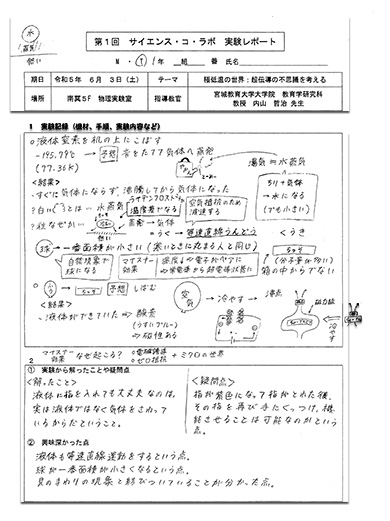 第1回 サイエンス・コ・ラボ 実験レポート
N・ 1年 組 番 氏名
期日 令和5年 6月 3日(土) テーマ 極低温の世界:超伝導の不思議を考える
場所 南冥5F 物理実験室 指導教官 宮城教育大学大学院 教育学研究科
教授 内山 哲治 先生
1 実験記録(機材、手順、実験内容など)
○液体窒素を机の上にこぼす
-195.79℃ → 予想 音をたてず気体へ蒸発
(77.36K)
湯気=水蒸気
<結果>
・すぐに気体にならず、沸騰してから気体になった
ちり+気体
→水になる
(でも小さい)
?白い とは…水蒸気
ライデンフロスト
温度差でなる
空気抵抗のため
減速する
→蒸発→気体
うく→等速直線うんどう
くうき
球→一番面積が小さい(寒いときに丸まる人と同じ)
自然現象で
球になる
マイスナー
効果
(分子量が軽い)
箱の中からでない
予想 しぼむ
<結果>
空気
→冷やす→
沸点
・液体ができていた⇒酸素
(うすいブルー)
⇒磁性ある
冷やす
2 マイスナー
効果 なぜ起こる?
○電磁誘導
○ゼロ抵抗
+ミクロの世界
① 実験から解ったことや疑問点
<解ったこと>
液体に指を入れても大丈夫なのは、
実は液体ではなく気体をさわって
いるからだということ。
<疑問点>
指が紫色になって指がとれた後、
その指を再び手にくっつけ、機
能させることは可能なのかとい
う点。
② 興味深かった点
液体も等速直線運動をするという点。
球が一番面積が小さくなるという点。
身のまわりの現象と結びついていることが分かった点。